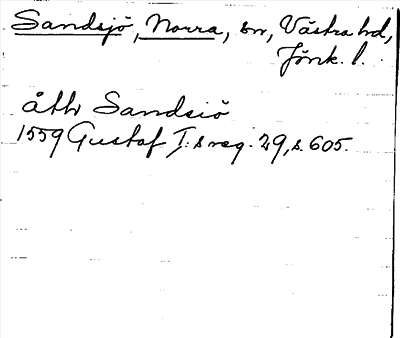 Sandsjö, Norra, sn, Västra hd,
Jönk. l.
åth Sandsiö
1559 Gustaf I:s reg. 29, s. 605.